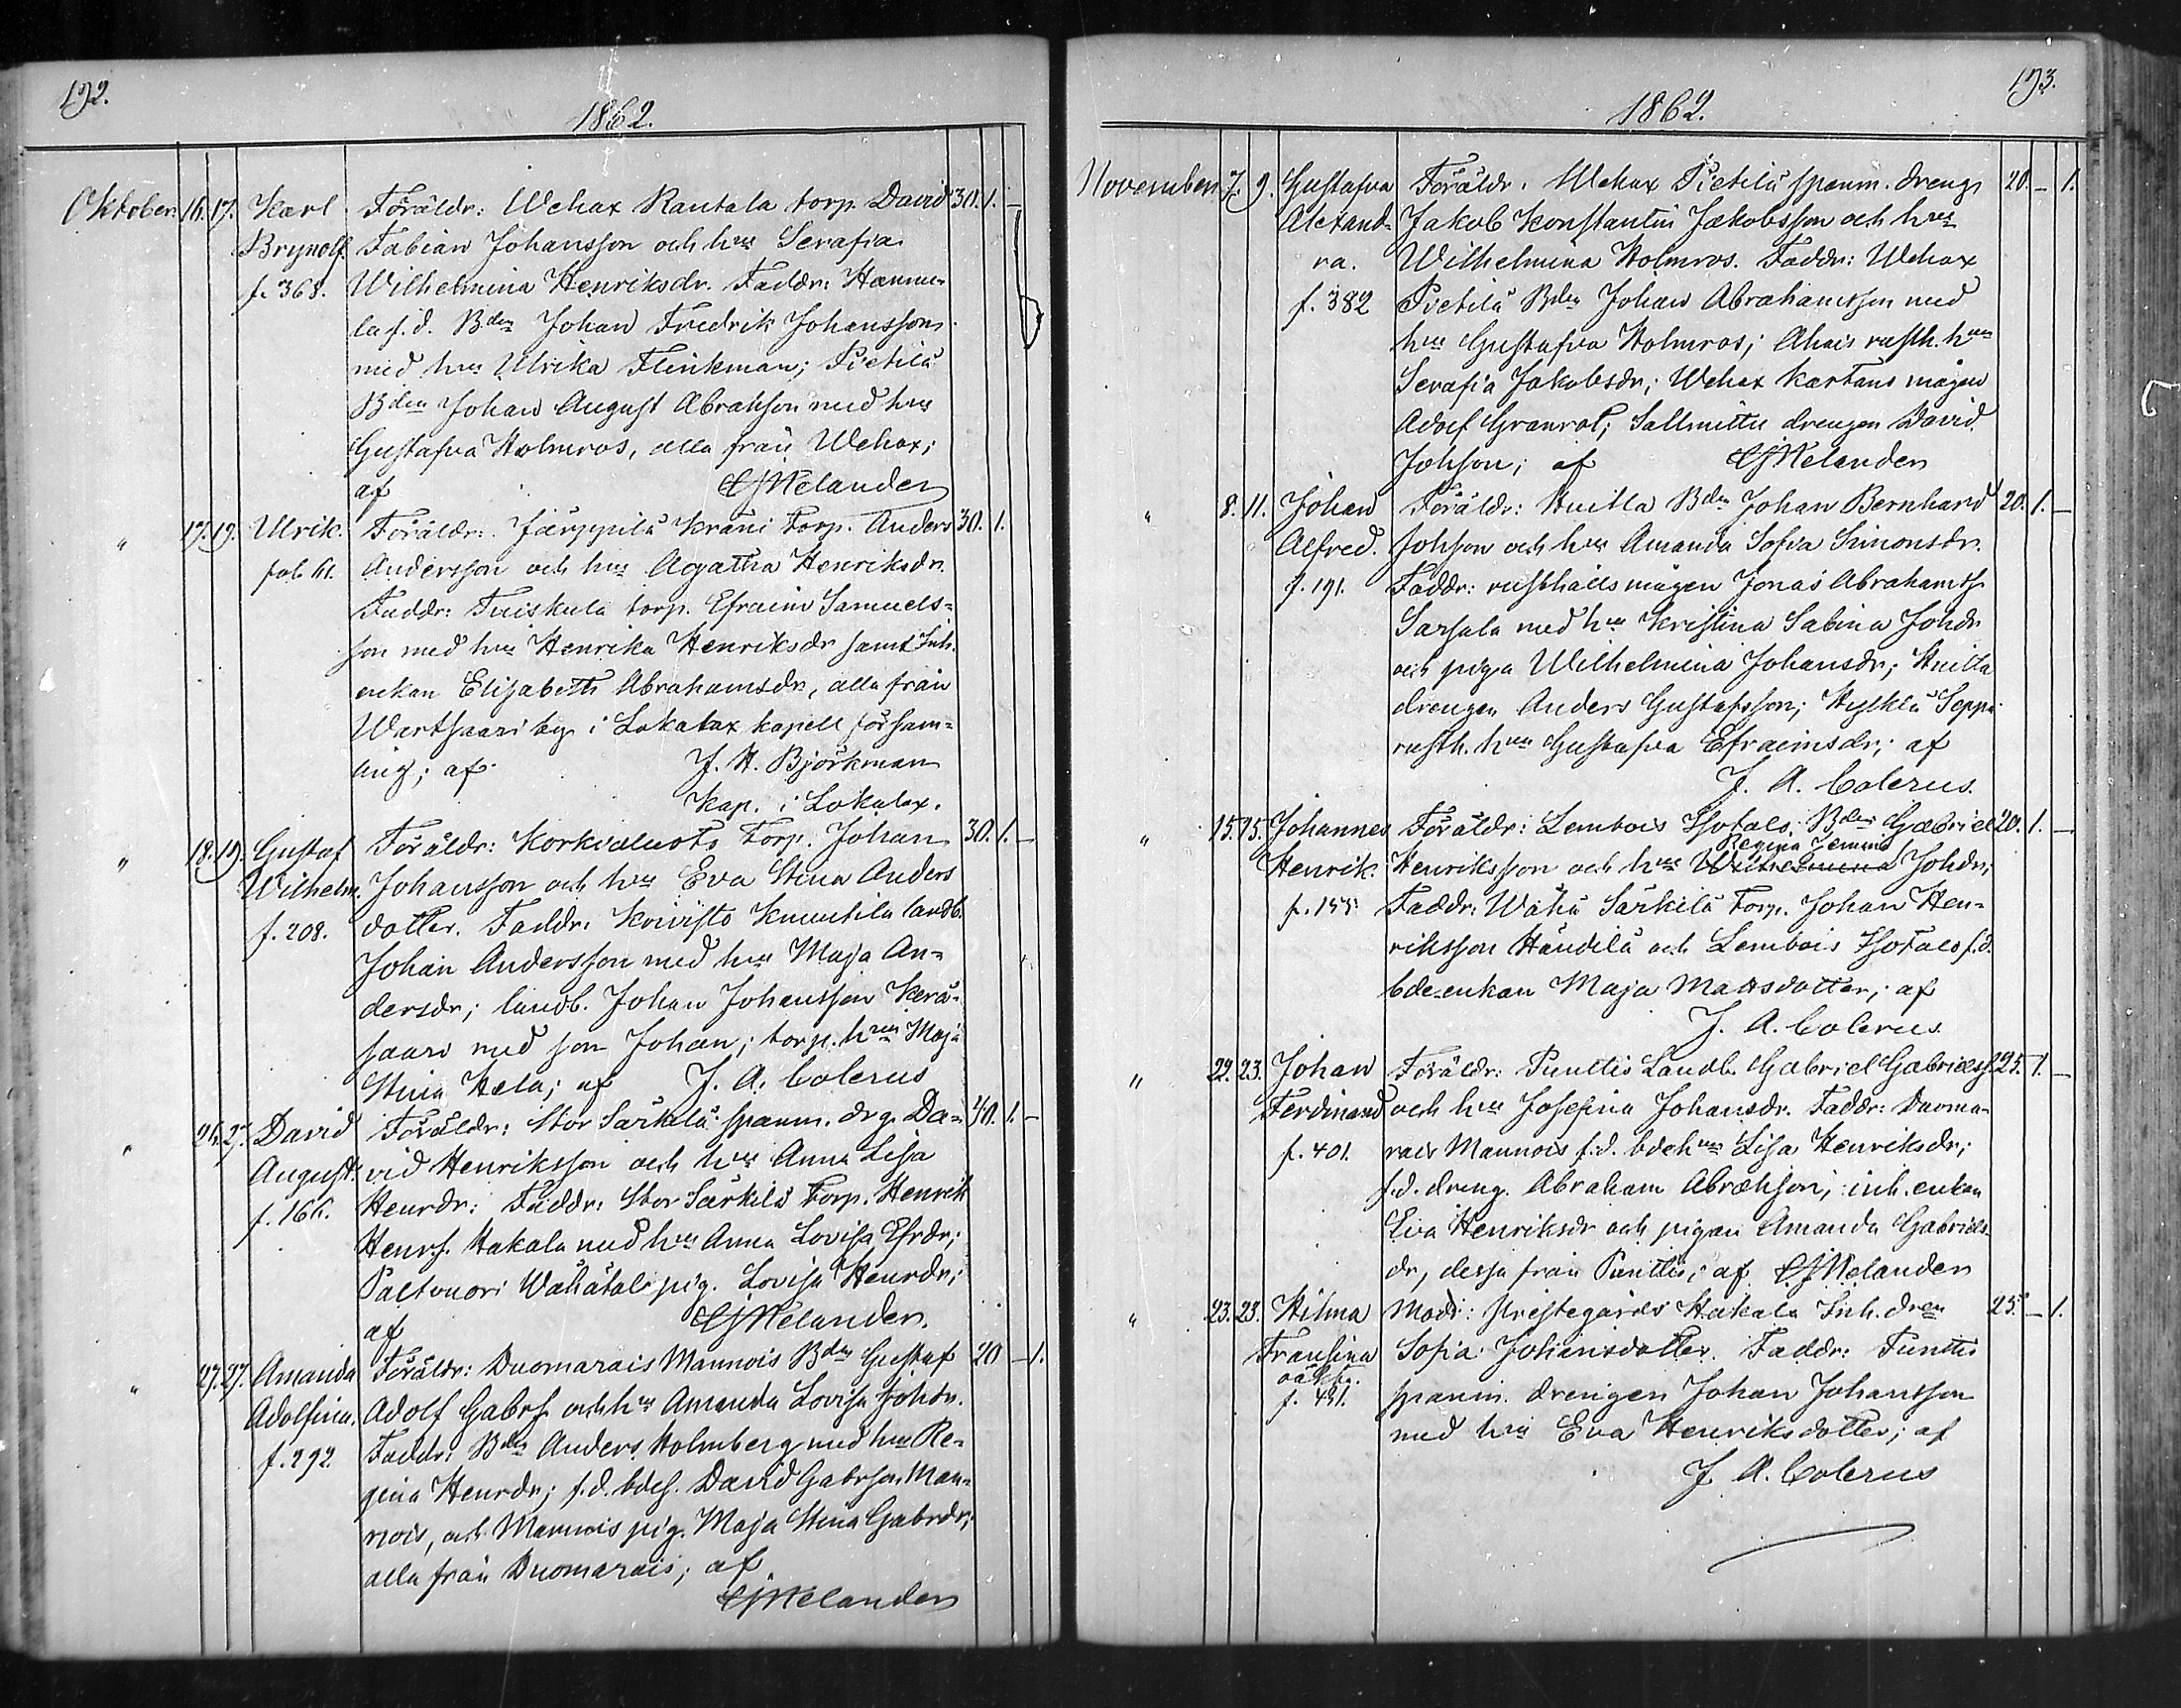 192.
1862.
Oktober. 16. 17. Karl Föräldr: Wehax Rantala torp. David 30. 1. –
Brynolf. Fabian Johansson och hru Serafia
f. 368. Wilhelmina Henriksdr. Faddr: Hannu-
la f.d. Bden Johan Fredrik Johansson
med hru Ulrika Flinkman; Pietilä
Bden Johan August Abrahsson med hru
Gustafva Holmros, alla från Wehax;
af CJWelander
" 17. 19. Ulrik. Föräldr: Järppilä Kräni Torp. Anders 30. 1.
fol. 61. Andersson och hru Agatha Henriksdr.
Faddr: Tuiskula torp. Efraim Samuels-
son med hru Henrika Henriksdr samt Inh.
enkan Elisabeth Abrahamsdr, alla från
Wartsaari by i Lokalax kapell försam-
ling; af J. H. Björkman
Kap. i Lokalax.
" 18. 19. Gustaf Föräldr: Korkialuoto Torp. Johan 30. 1. –
Wilhelm. Johansson och hru Eva Stina Anders
f. 208. dotter. Faddr: Koivisto Knuutila landb.
Johan Andersson med hru Maja An-
dersdr; landb. Johan Johansson Kerä-
saari med son Johan; torp. hrn Maja
Stina Hela; af J. A. Colerus
" 26. 27. David Föräldr: Stor Särkilä spanm. drg. Da- 40. 1. –
August. vid Henriksson och hru Anna Lisa
f. 166. Henrdr: Faddr: Stor Särkilä Torp. Henrik
Henrs. Hakala med hru Anna Lovisa Efrdr;
Paltvuori Wähätalo pig. Lovisa Henrdr;
af CJWelander.
" 27. 27. Amanda Föräldr: Duomarais Mannois Bden Gustaf 20 – 1.
Adolfina. Adolf Gabrs. och hru Amanda Lovisa Johdr.
f. 292. Faddr: Bden Anders Holmberg med hru Re-
gina Henrdr; f.d. bdes. David Gabrson Man-
nois, och Mannois pig. Maja Stina Gabrdr;
alla från Duomarais; af
CJWelander
193.
1862.
November. 7. 9. Gustafva Föräldr: Wehax Pietilä spanm. dreng 20. – 1.
Alexand- Jakob Konstantin Jakobsson och hru
ra. Wilhelmina Holmros. Faddr: Wehax
f. 382 Pietilä Bden Johan Abrahamsson med
hru Gustafva Holmros; Ahais rusth. hrun
Serafia Jakobsdr; Wehax Kartano mågen
Adolf Granrot; Sallmittu drengen David
Johsson; af CJWelander
" 8. 11. Johan Föräldr: Huilla Bden Johan Bernhard 20. 1. –
Alfred. Johsson och hru Amanda Sofia Simonsdr.
f. 191. Faddr: rusthålls mågen Jonas Abrahams.
Sarsala med hru Kristina Sabina Johdr
och piga Wilhelmina Johansdr; Huilla
drengen Anders Gustafsson; Hylkilä Seppä
rusth. hru Gustafva Efraimsdr; af
J. A. Colerus.
" 15. 15. Johannes Föräldr: Lembois Isotalo Bden Gabriel 20. 1. –
Regina Jemina
Henrik. Henriksson och hru Wilhelmina Johdr;
f. 155. Faddr: Wähä Särkilä Torp. Johan Hen-
riksson Händilä och Lembois Isotalo f.d.
bde.enkan Maja Mattsdotter; af
J. A. Colerus.
" 22. 23. Johan Föräldr: Punttis Landb. Gabriel Gabrielss. 25. 1. –
Ferdinand och hru Josefina Johansdr. Faddr: Duoma-
f. 401. rais Mannois f.d. bdehru Lisa Henriksdr;
f.d. dreng. Abraham Abrahsson; inh. enkan
Eva Henriksdr och pigan Amanda Gabriels-
dr, dessa från Punttis; af CJWelander
" 23. 23. Hilma Modr: Prestegårds Hakala Inh. dren 25. – 1.
Fransina Sofia Johansdotter. Faddr: Punttis
oäkta.
f. 451. spanm. drengen Johan Johansson
med hru Eva Henriksdotter; af
J. A. Colerus